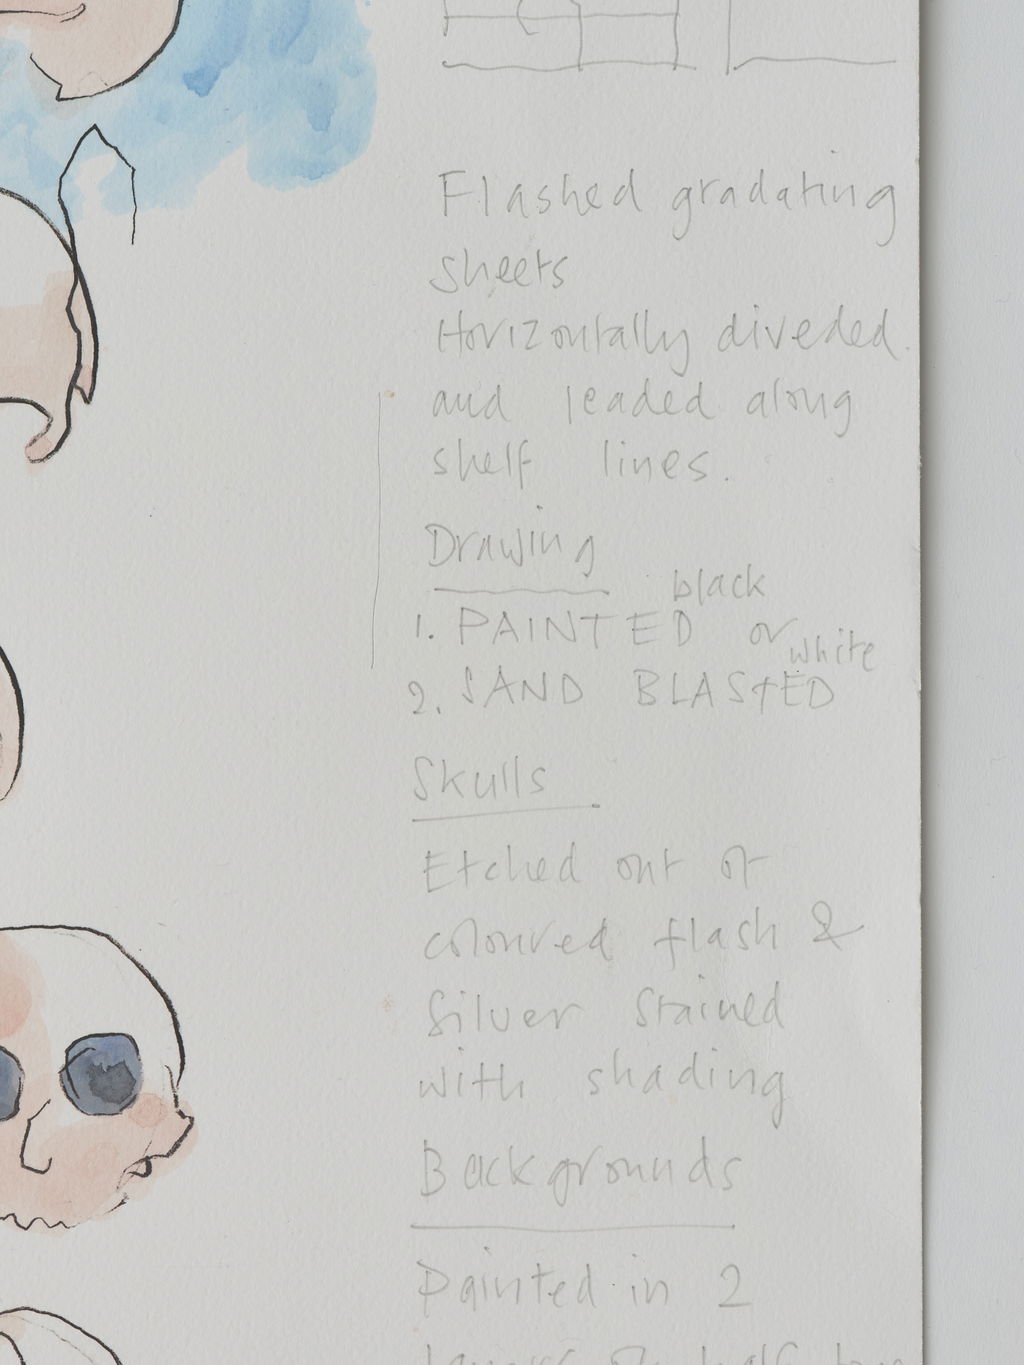 Flashed gradating
sheets
Horizontally diveded.
and leaded along
shelf lines.
Drawing
black
1. PAINTED or
white
2. SAND BLASTED
Skulls
Etched out of
coloured flash &
Silver Stained
with shading
Backgrounds
Painted in 2